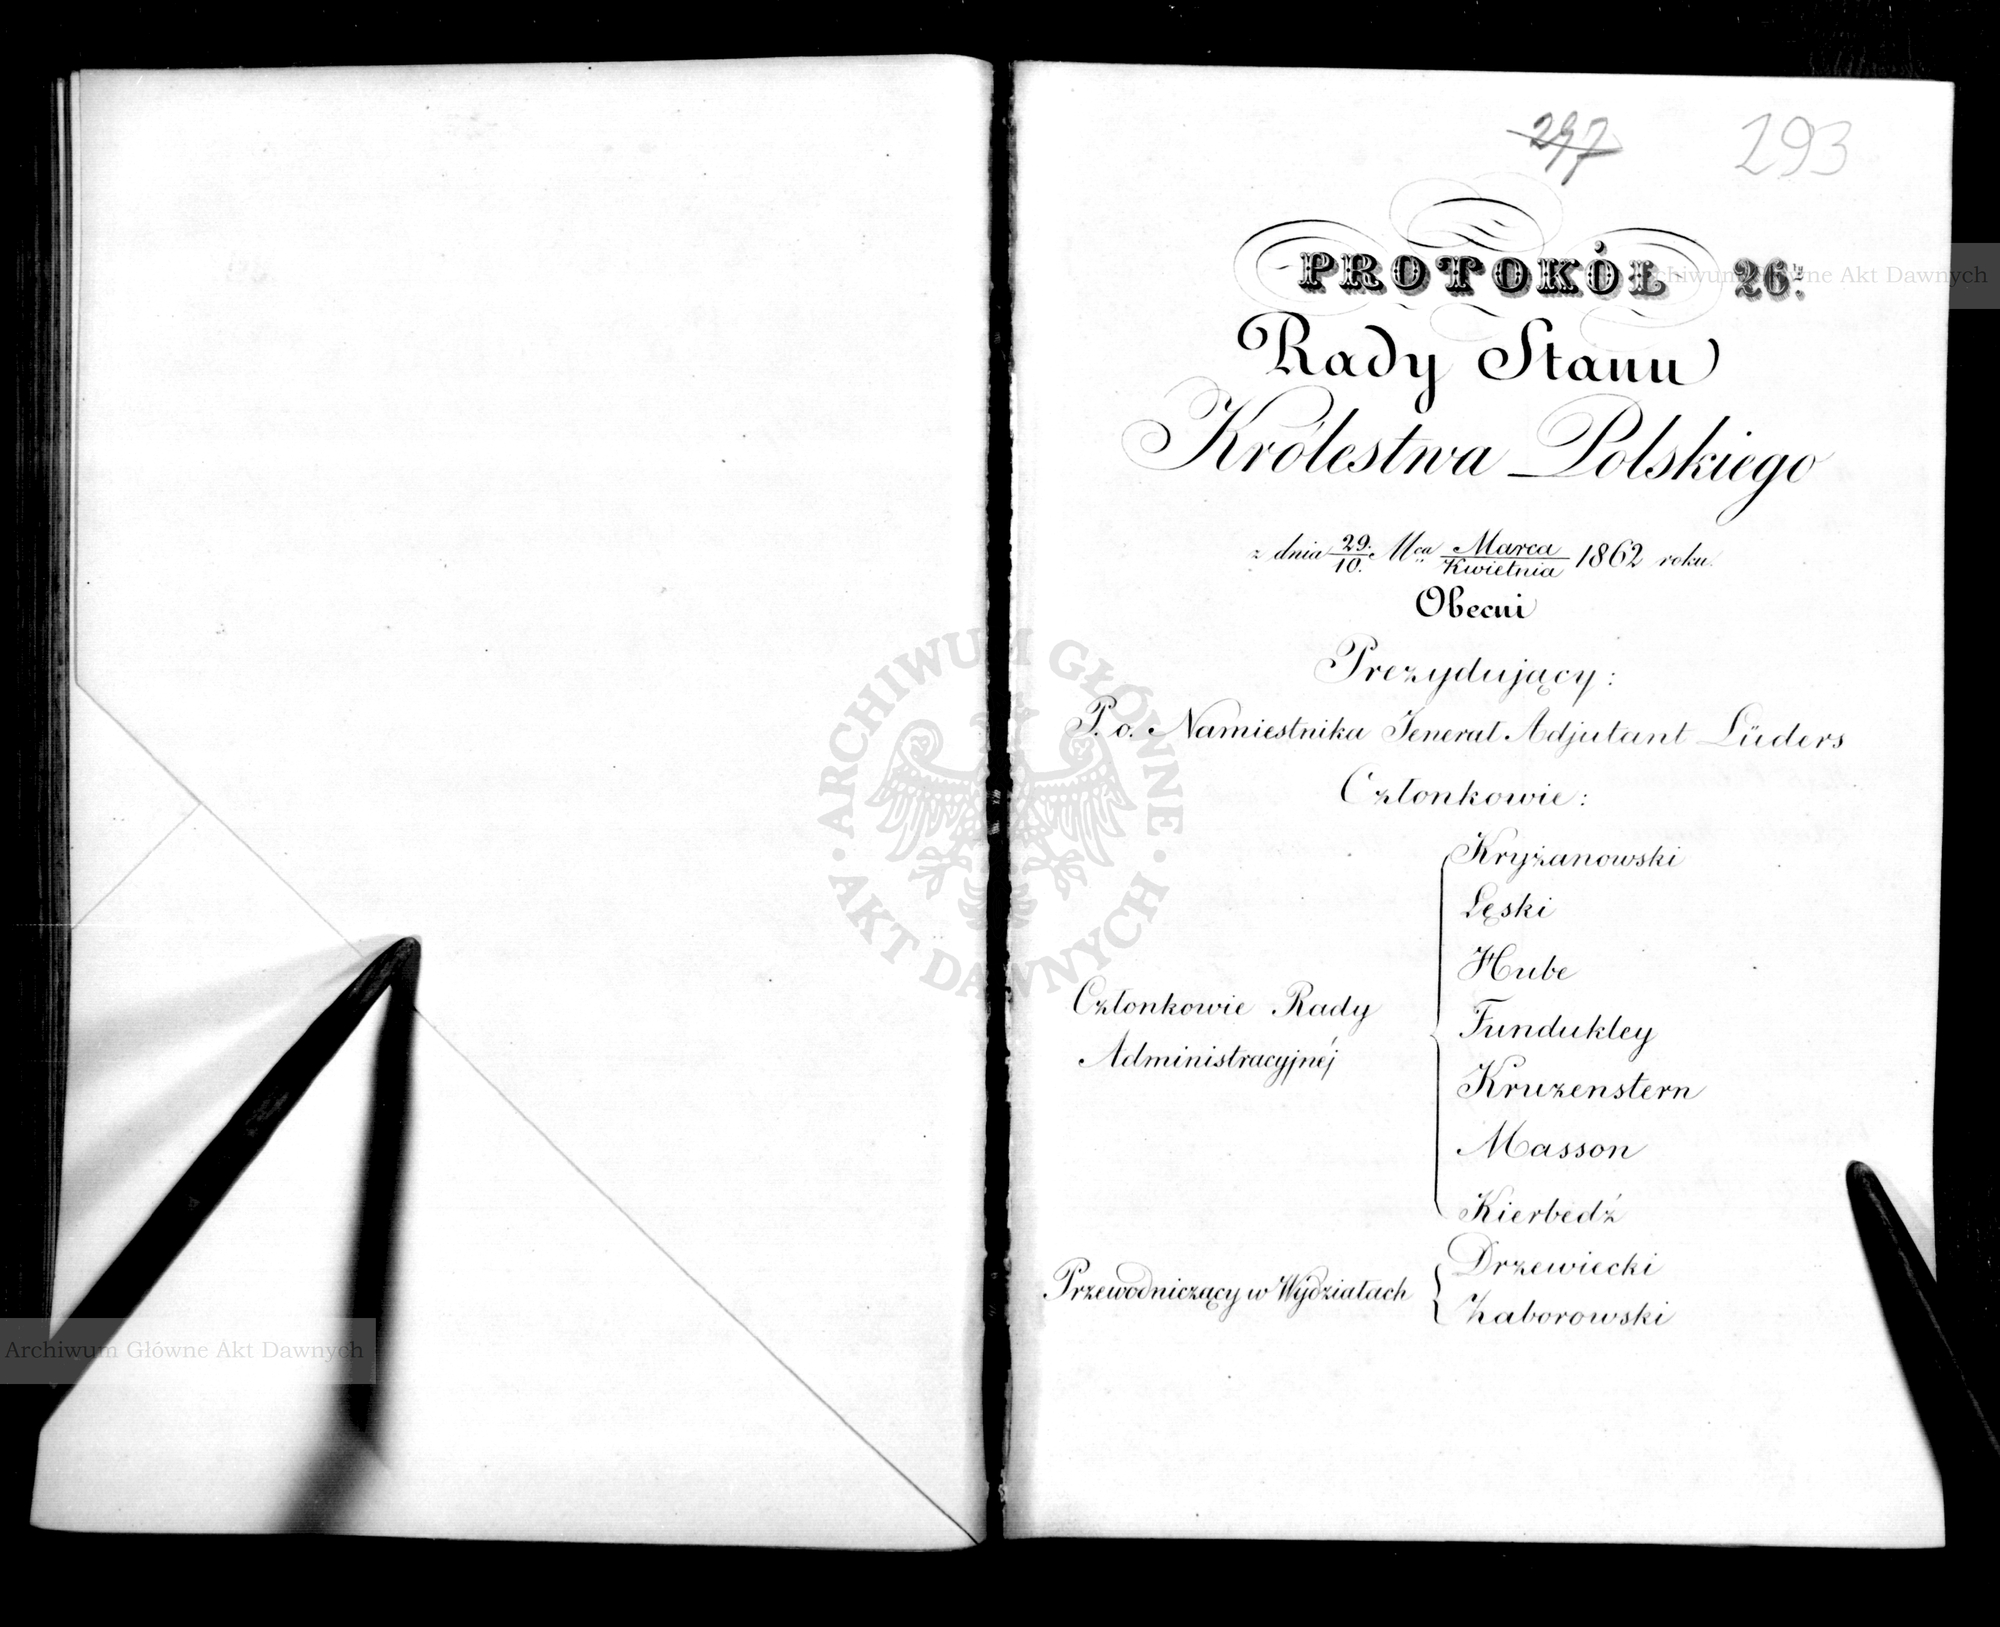 297 293
PROTOKÓŁ 26ty.
Rady Stanu
Królestwa Polskiego
z dnia 29./10. Mca Marca/Kwietnia 1862 roku.
Obecni
Prezydujący:
P. o. Namiestnika Jenerał Adjutant Lüders
Członkowie:
Członkowie Rady
Administracyjnéj
Kryżanowski
Łęski
Hube
Fundukley
Kruzenstern
Masson
Kierbedź
Przewodniczący w Wydziałach
Drzewiecki
Zaborowski
ARCHIWUM GŁÓWNE
AKT DAWNYCH
Archiwum Główne Akt Dawnych
Archiwum Główne Akt Dawnych